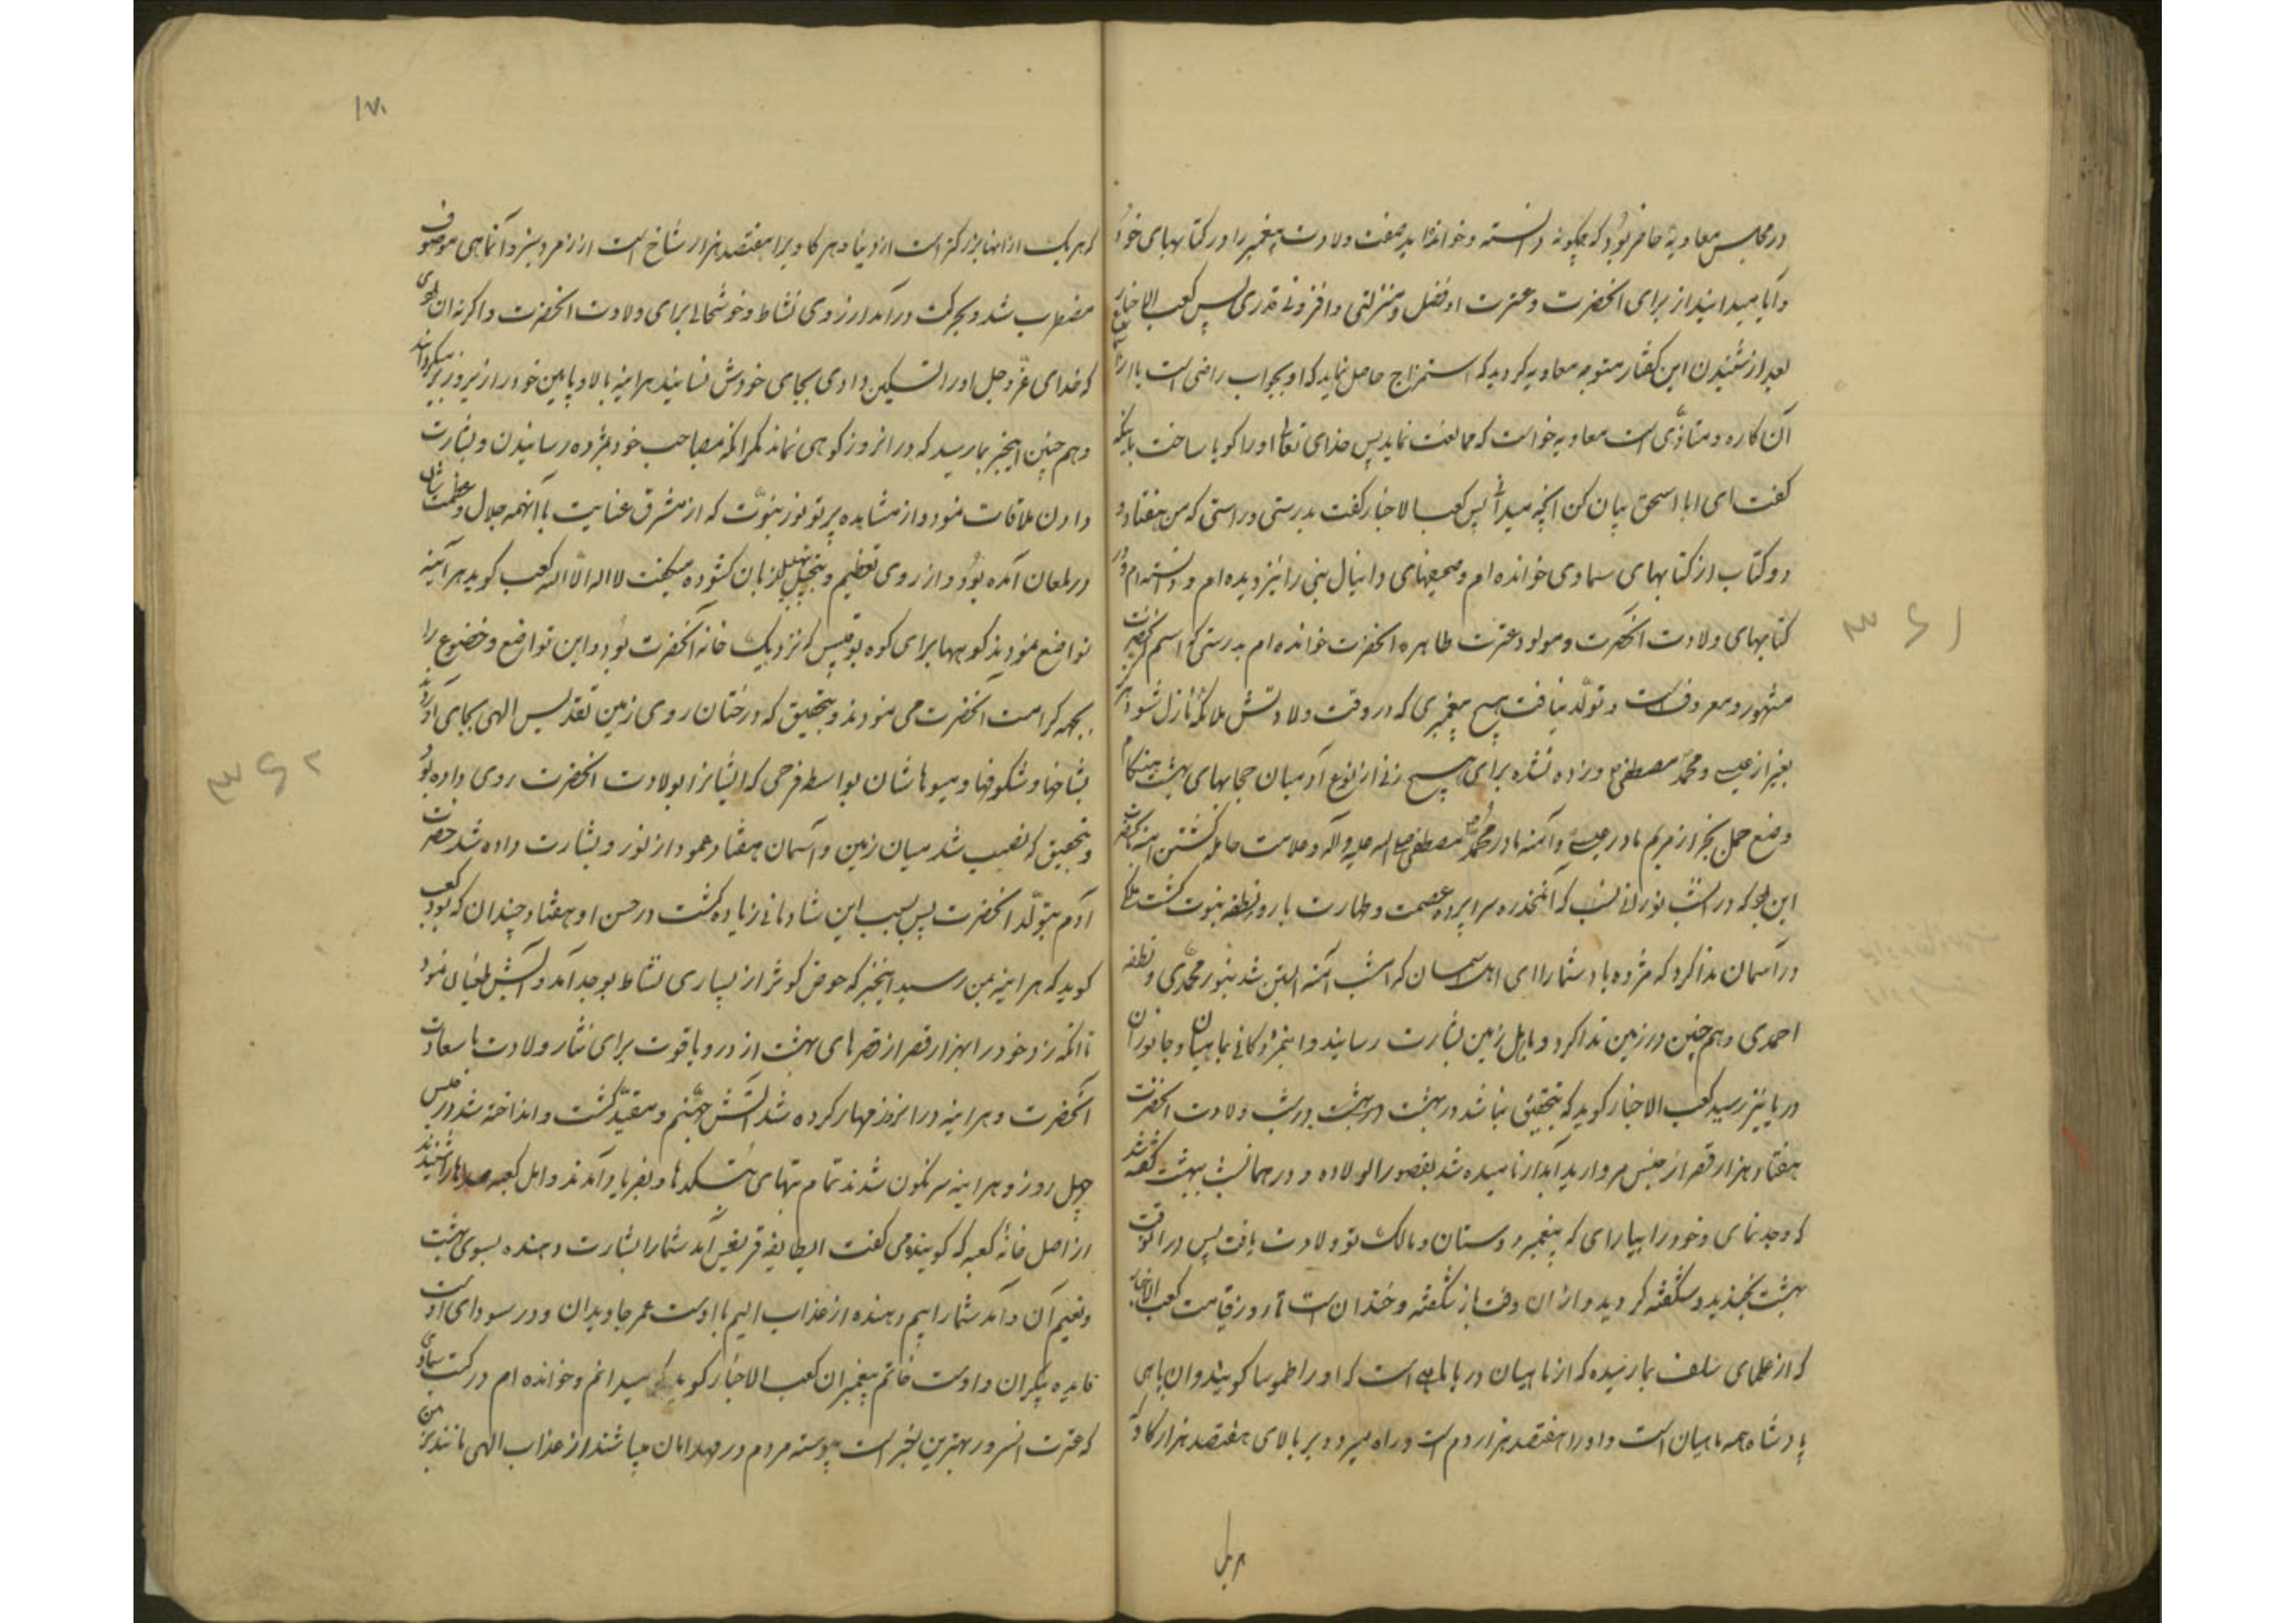 در مجلس معاویه حاضر بود که چگونه دانسته و خوانده‌اید صفت ولادت پیغمبر را در کتابهای خود
و آیا میدانید از برای آنحضرت و عترت او فضل و منزلتی و افزونی قدری پس کعب الاخبار
بعد از شنیدن این گفتار متوجه معاویه گردید که استمزاج حاصل نماید که او بجواب راضی است یا از
آن کاره و متاذّی است معاویه خواست که ممانعت نماید پس خدای تعالی او را گویا ساخت باینکه
گفت ای ابا اسحق بیان کن آنچه میدانی پس کعب الاخبار گفت بدرستی و راستی که من هفتاد و
دو کتاب از کتابهای سماوی خوانده‌ام و صحیفهای دانیال نبی را نیز دیده‌ام و دانسته‌ام و در
کتابهای ولادت آنحضرت و مولود عترت طاهره آنحضرت خوانده‌ام بدرستی که اسم آنحضرت
مشهور و معروفست و تولّد نیافت هیچ پیغمبری که در وقت ولادتش ملائکه نازل شود
بغیر از عیسی و محمّد مصطفی و زده نشده برای هیچ زنی از نوع آدمیان حجابهای بهشت هنگام
وضع حمل بجز از مریم مادر عیسی و آمنه مادر محمّد مصطفی صلی الله علیه وآله و علامت حامله گشتن آمنه بآنحضرت
این بود که در آن شب نورانی نسب که آن مخدره سراپرده عصمت و طهارت بارور نطفه نبوت گشت ملکی
در آسمان ندا کرد که مژده باد شما را ای اهل آسمان که امشب آمنه آبستن شد بنور محمّدی و نطفه
احمدی و هم چنین در زمین ندا کرد و باهل زمین بشارت رسانید و این مژدگانی بماهیان و جانوران
دریا نیز رسید کعب الاخبار گوید که بتحقیق بنا شد در بهشت در شب ولادت آنحضرت
هفتاد هزار قصر از جنس مروارید آبدار نامیده شد بقصور الولاده و در همان شب ببهشت گفته شد
که وجد نمای و خود را بیارای که پیغمبر دوستان و مالک تو ولادت یافت پس در آنوقت
بهشت بخندید و شگفته گردید و از ان وقت باز شگفته و خندانست تا روز قیامت کعب الاخبار
که از علمای سلف بما رسیده که از ماهیان دریا ماهی است که او را طموسا گویند و ان ماهی
پادشاه همه ماهیان است و او را هفتصد هزار دم است و راه میرود بر بالای هفتصد هزار گاو که
هر یک
۱۷۰
که هر یک از انها بزرگتر است از دنیا و هر گاو را هفتصد هزار شاخ است از زمرد سبز و آن ماهی موصوف
مضطرب شد و بحرکت درآمد از روی نشاط و خوشحالی برای ولادت آنحضرت و اگر نه ان بودی
که خدای عزّوجل او را تسکین دادی بجای خودش نشانید هراینه بالا و پایین خود را زیر و زبر میگردانید
و هم چنین این خبر بما رسید که در انروز کوهی نماند مگر انکه مصاحب خود مژده رسانیدن و بشارت
دادن ملاقات نمود و از مشاهده پرتو نور نبوّت که از مشرق عنایت با آنهمه جلال و عظمت شان
در لمعان آمده بود و از روی تعظیم و تبجیل بتهلیل زبان گشوده میگفت لا اله الّا الله کعب گوید هر آینه
تواضع نمودند کوهها برای کوه بوقبیس که نزدیک خانه آنحضرت بود و این تواضع و خضوع را
بجهه کرامت آنحضرت می نمودند و بتحقیق که درختان روی زمین تقدیس الهی بجای آوردند
بشاخها و شگوفها و میوهاشان بواسطه فرحی که ایشانرا بولادت آنحضرت روی داده بود
و بتحقیق که نصب شد میان زمین و آسمان هفتاد عمود از نور و بشارت داده شد حضرت
آدم بتولّد آنحضرت پس بسبب این شادمانی زیاده گشت در حسن او هفتاد چندان که بود کعب
گوید که هراینه بمن رسید این خبر که حوض کوثر از بسیاری نشاط بوجد آمد و آبش طغیان نمود
تا انکه زد خود را بهزار قصر از قصرهای بهشت از در و یاقوت برای نثار ولادت با سعادت
آنحضرت و هراینه در انروز مهار کرده شد آتش جهنّم و مقیّد گشت و انداخته شد در حبس
چهل روز و هراینه سرنگون شدند تمام بتهای بتکدها و بفریاد آمدند و اهل کعبه صداها را شنیدند
از اصل خانه کعبه که گوینده می گفت ای طایفه قریش آمد شما را بشارت دهنده بسوی بهشت
و نعیم آن و آمد شما را بیم دهنده از عذاب الیم با اوست عمر جاویدان و در سودای اوست
فایده بیکران و اوست خاتم پیغمبران کعب الاخبار گوید که میدانم و خوانده‌ام در کتب سماوی
که عترت انسرور بهترین بشر است پیوسته مردم در مهد امان میباشند از عذاب الهی مانند بز من
۳۶۱
۳۶۲